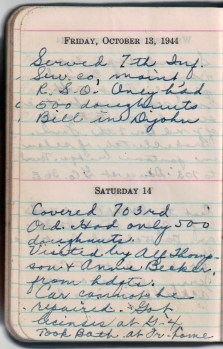 FRIDAY, OCTOBER 13, 1944
Served 7th Inf.
Serv. co, maint
R. S. O. Oney had
500 doughnuts
Bill in Dijohn
SATURDAY 14
Covered 703rd
Ord. Had only 500
doughnuts.
Visited by Alf Thomp-
son & Annie Becker,
from hdqts.
Car cannot be
repaired. Got
Grinder at G-4/
Took Bath at Fr. home